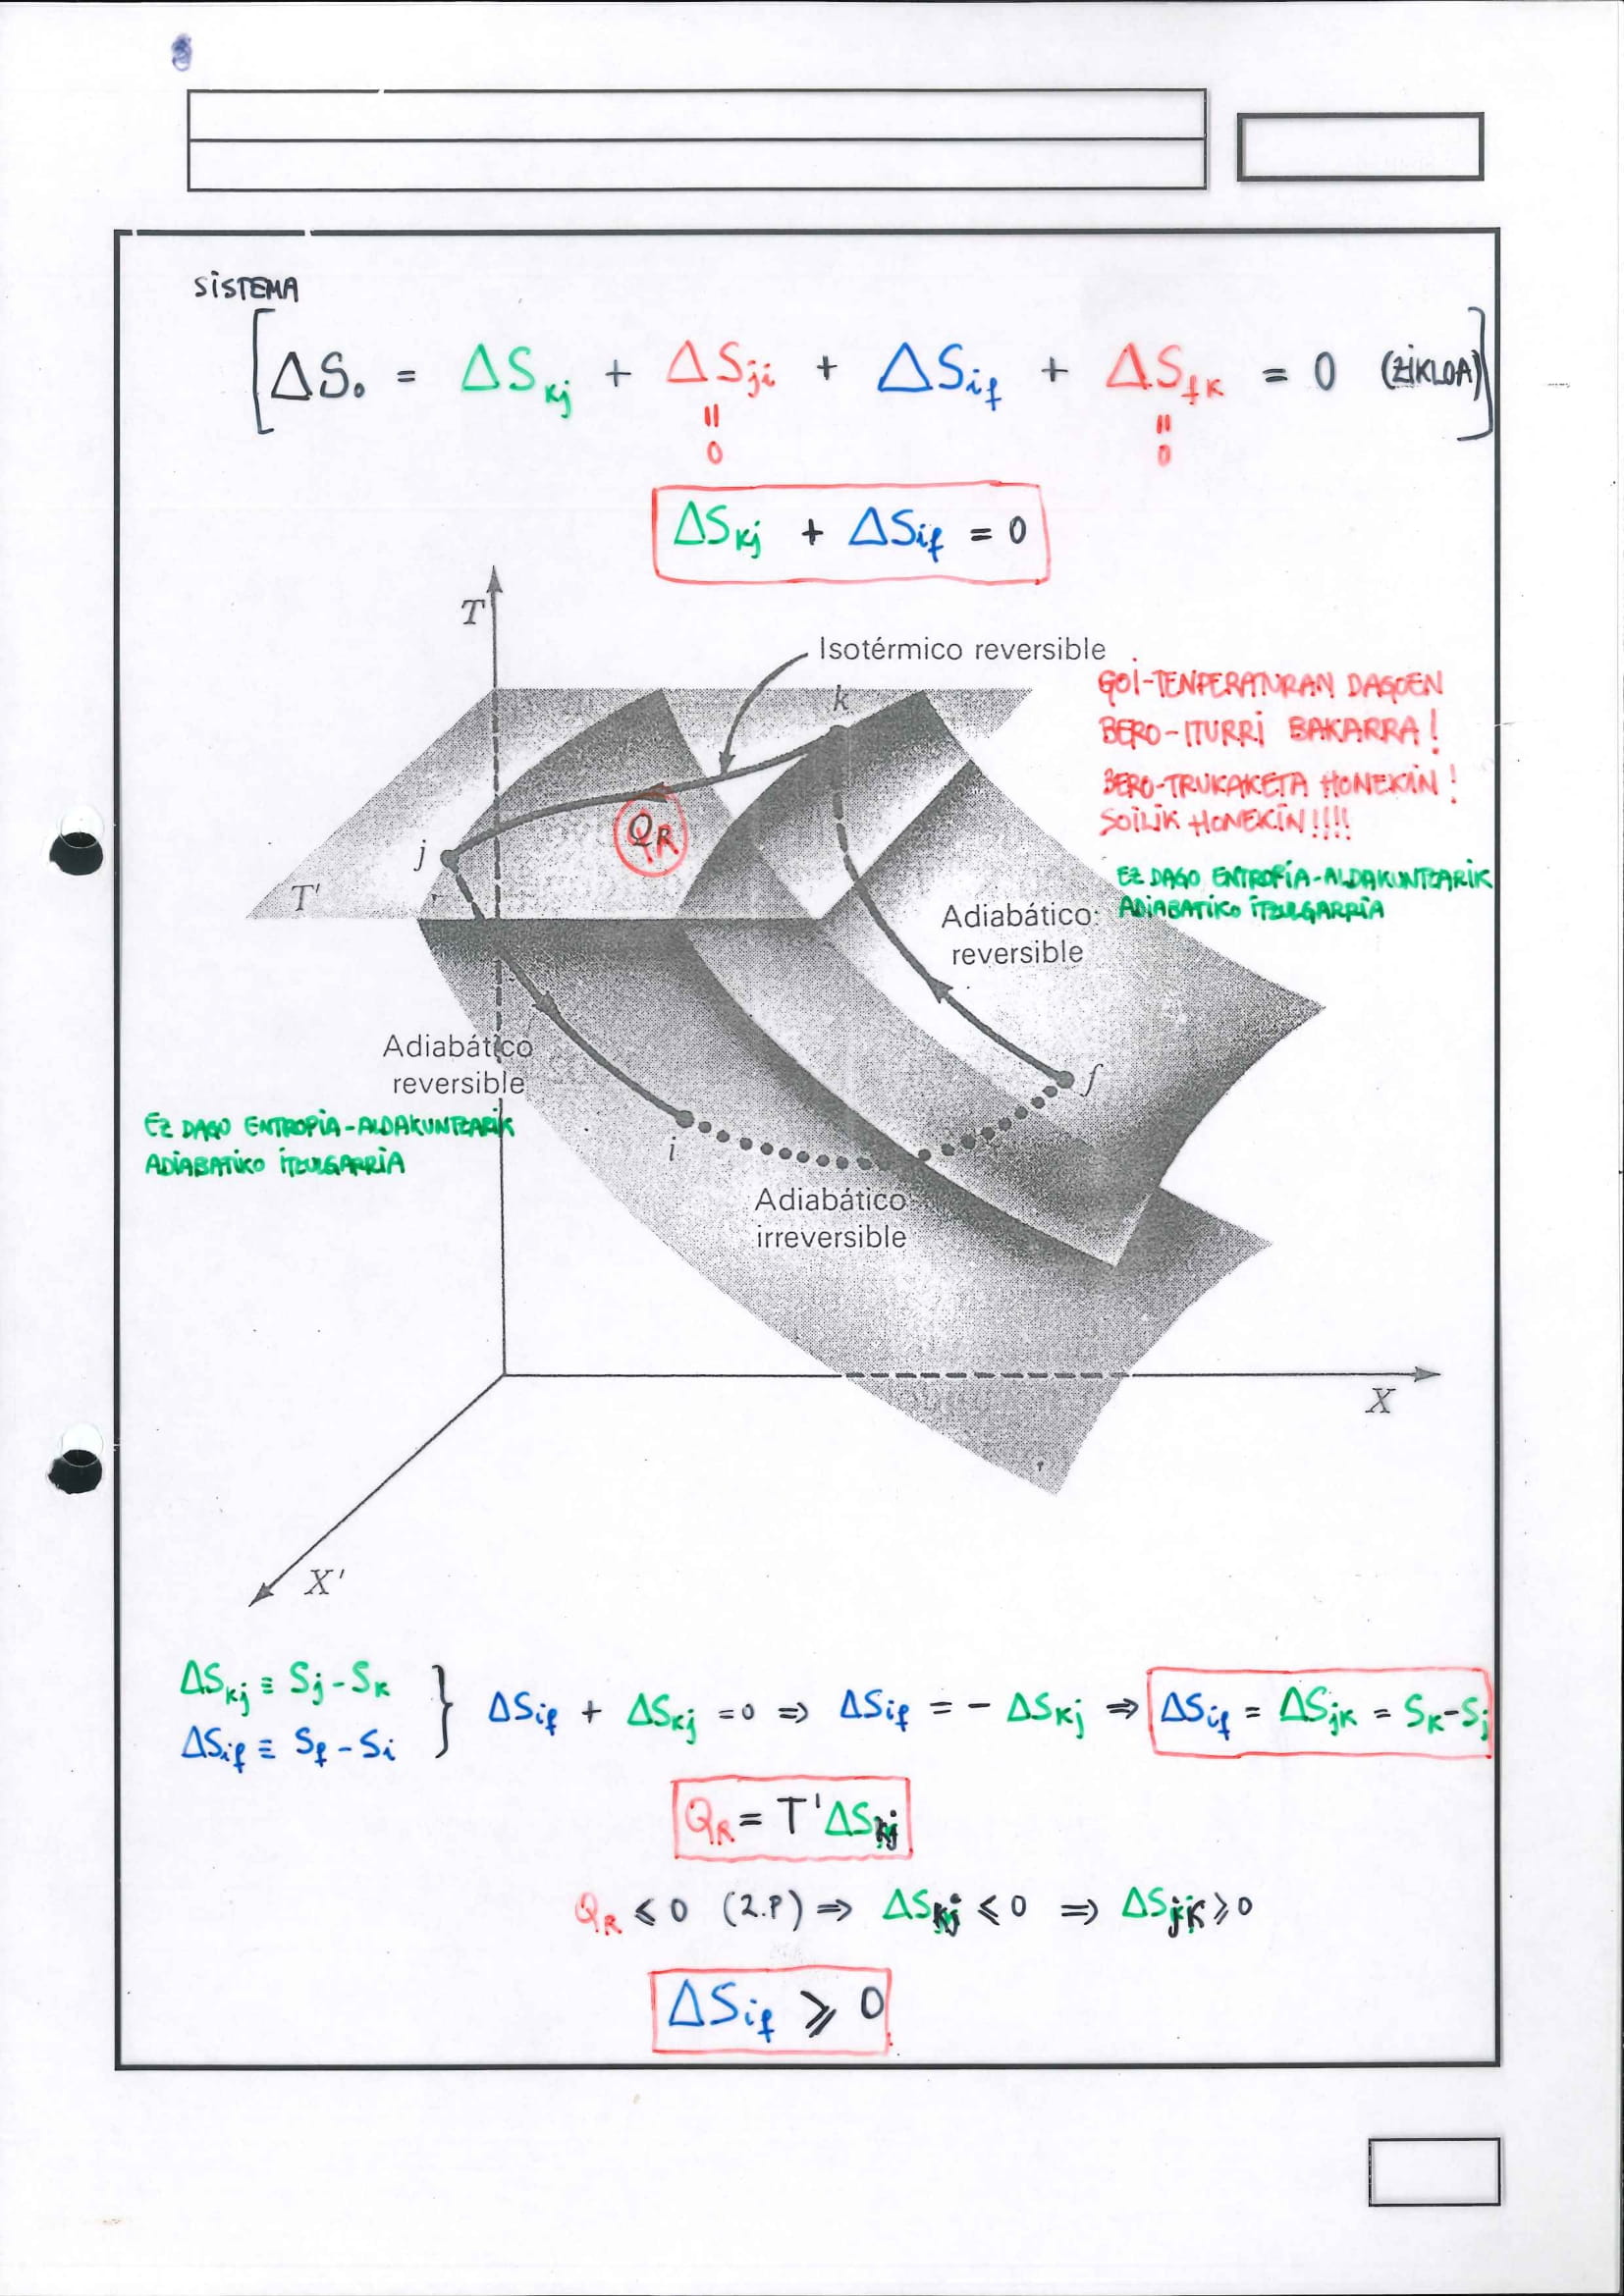 SISTEMA
[ΔS₀ = ΔS_kj + ΔS_ji + ΔS_if + ΔS_fk = 0 (ZIKLOA)]
= 0 = 0
ΔS_kj + ΔS_if = 0
T
Isotérmico reversible
k
GOI-TENPERATURAN DAGOEN
BERO-ITURRI BAKARRA!
BERO-TRUKAKETA HONEKIN!
SOILIK HONEKIN!!!!
Q_R
j
T'
EZ DAGO ENTROPIA-ALDAKUNTZARIK
ADIABATIKO ITZULGARRIA
Adiabático
reversible
Adiabático
reversible
f
EZ DAGO ENTROPIA-ALDAKUNTZARIK
ADIABATIKO ITZULGARRIA
i
Adiabático
irreversible
X
X'
ΔS_kj ≡ S_j - S_k
ΔS_if ≡ S_f - S_i
} ΔS_if + ΔS_kj = 0 ⇒ ΔS_if = - ΔS_kj ⇒ ΔS_if = ΔS_jk = S_k - S_j
Q_R = T'ΔS_kj
Q_R ⩽ 0 (2.P) ⇒ ΔS_kj ⩽ 0 ⇒ ΔS_jk ⩾ 0
ΔS_if ⩾ 0